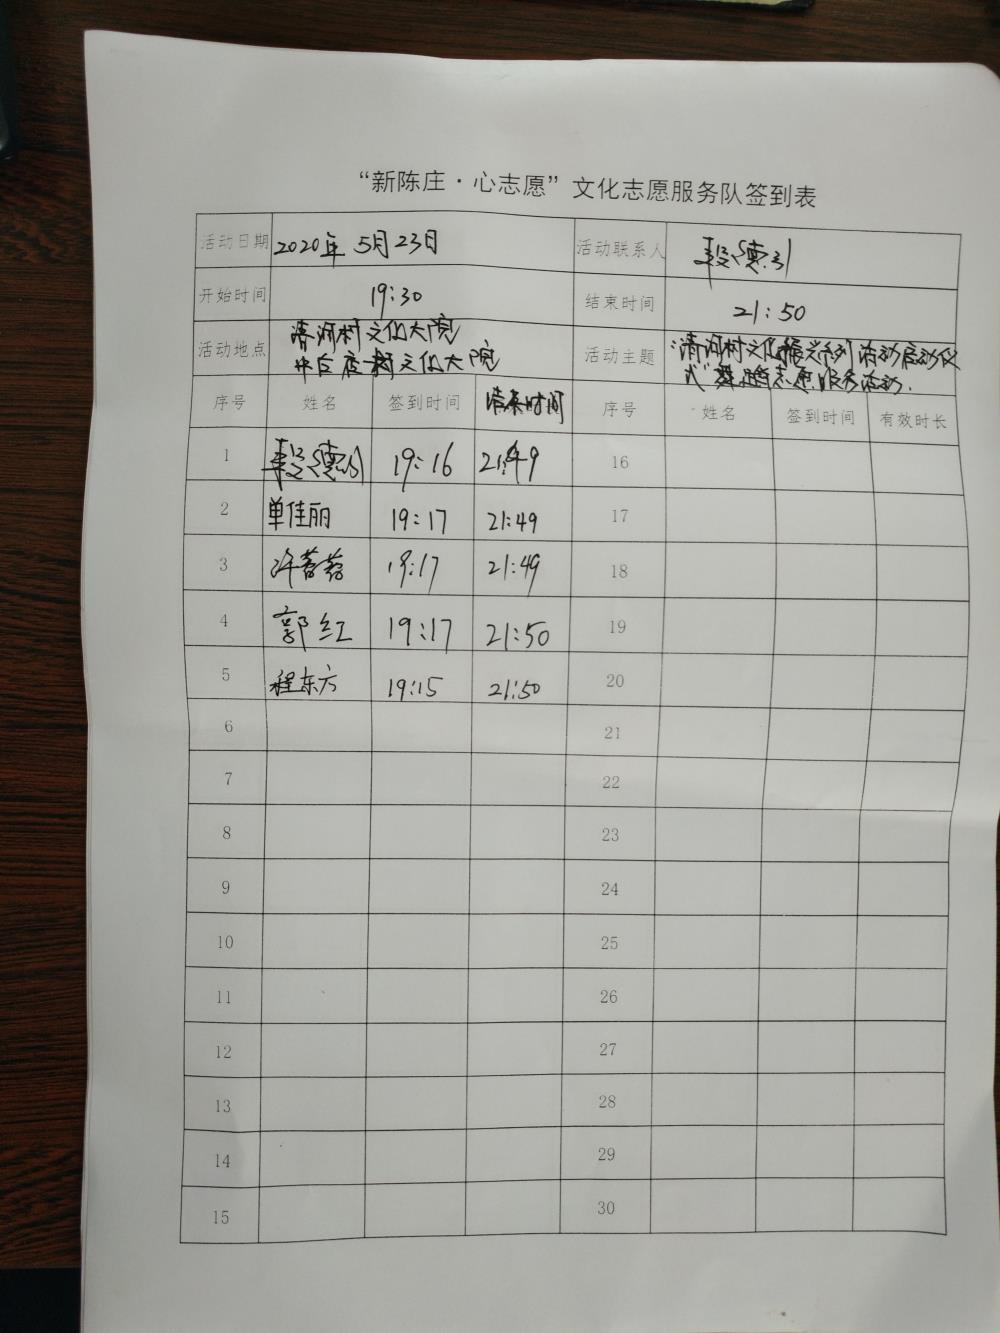 “新陈庄·心志愿”文化志愿服务队签到表
活动日期 2020年5月23日 活动联系人 段德引
开始时间 19:30 结束时间 21:50
活动地点 清河村文化大院 活动主题 “清河村文化振兴系列活动启动仪
村文化大院 式”舞蹈志愿服务活动.
序号 姓名 签到时间 结束时间 序号 姓名 签到时间 有效时长
1 段德引 19:16 21:49 16
2 单佳丽 19:17 21:49 17
3 许 19:17 21:49 18
4 郭红 19:17 21:50 19
5 程东方 19:15 21:50 20
6 21
7 22
8 23
9 24
10 25
11 26
12 27
13 28
14 29
15 30